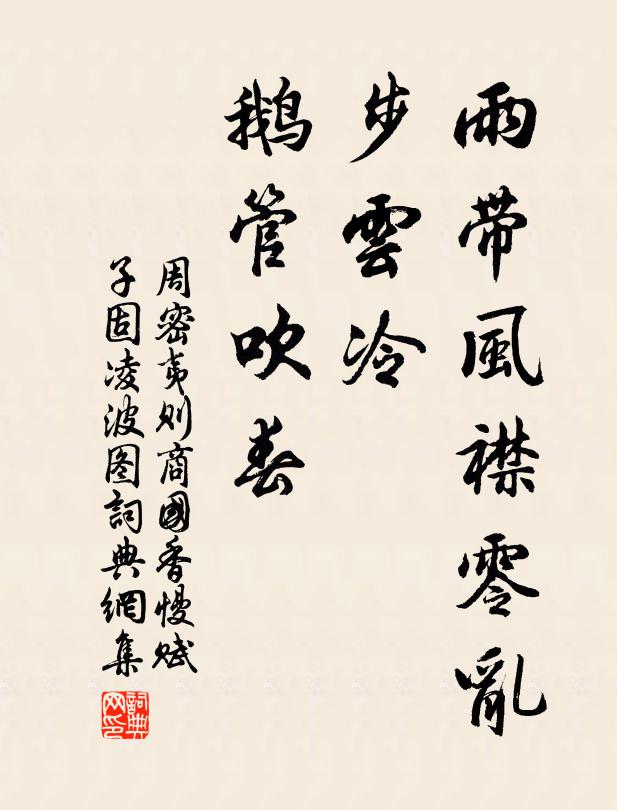 雨帶風襟零亂
步雲冷
鵝管吹春
周密夷则商國香慢赋
子固凌波图詞典網集
詞典网印